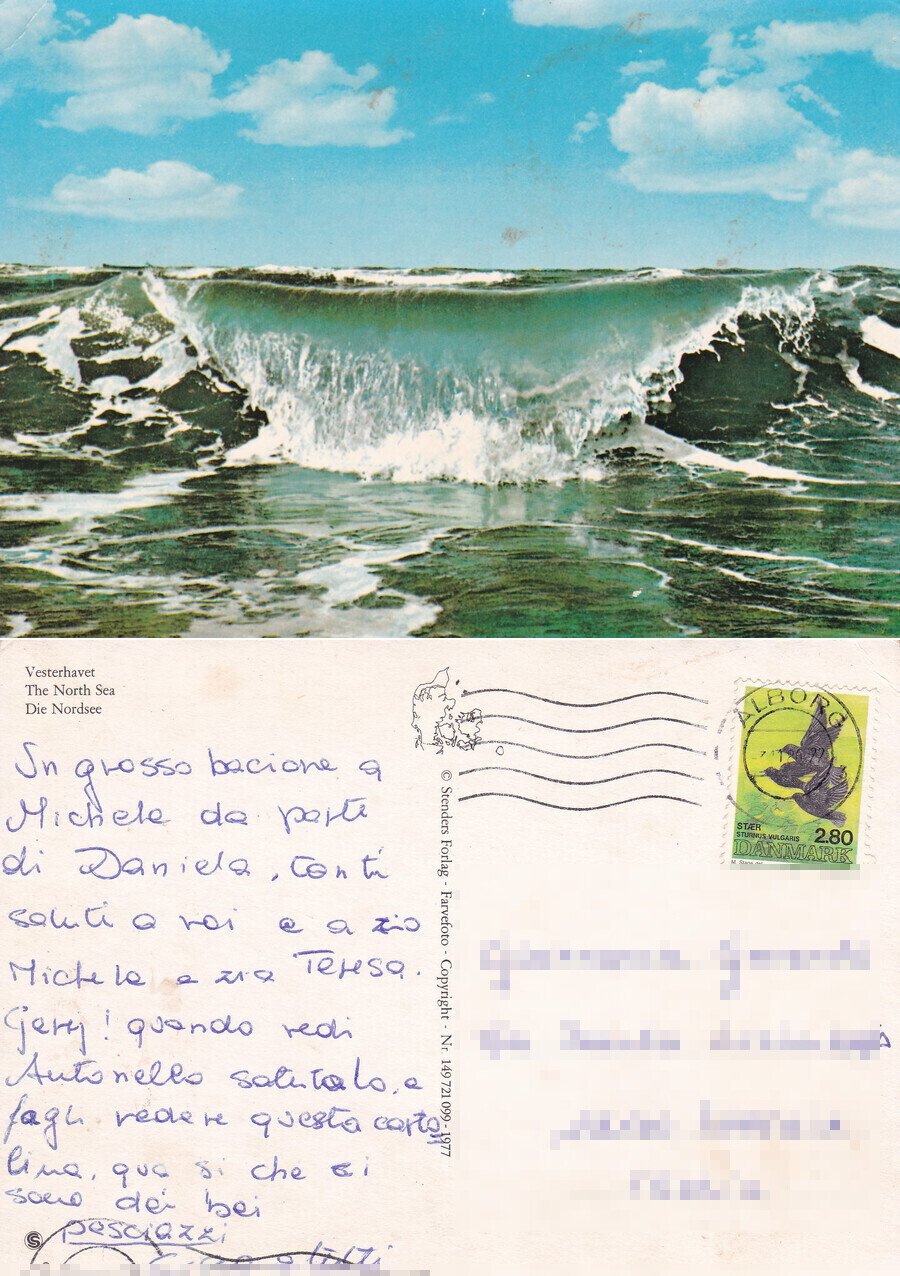 Vesterhavet
The North Sea
Die Nordsee
Un grosso bacione a
Michele da parte
di Daniela, tanti
saluti a voi e a zio
Michele e zia Teresa.
Gery! quando vedi
Antonello salutalo, e
fagli vedere questa carto
lina, qua si che ci
sono dei bei
pesciazzi
© Stenders Forlag - Farvefoto - Copyright - Nr. 149 721 099 - 1977
ÅLBORG
STÆR
STURNUS VULGARIS
2.80
DANMARK